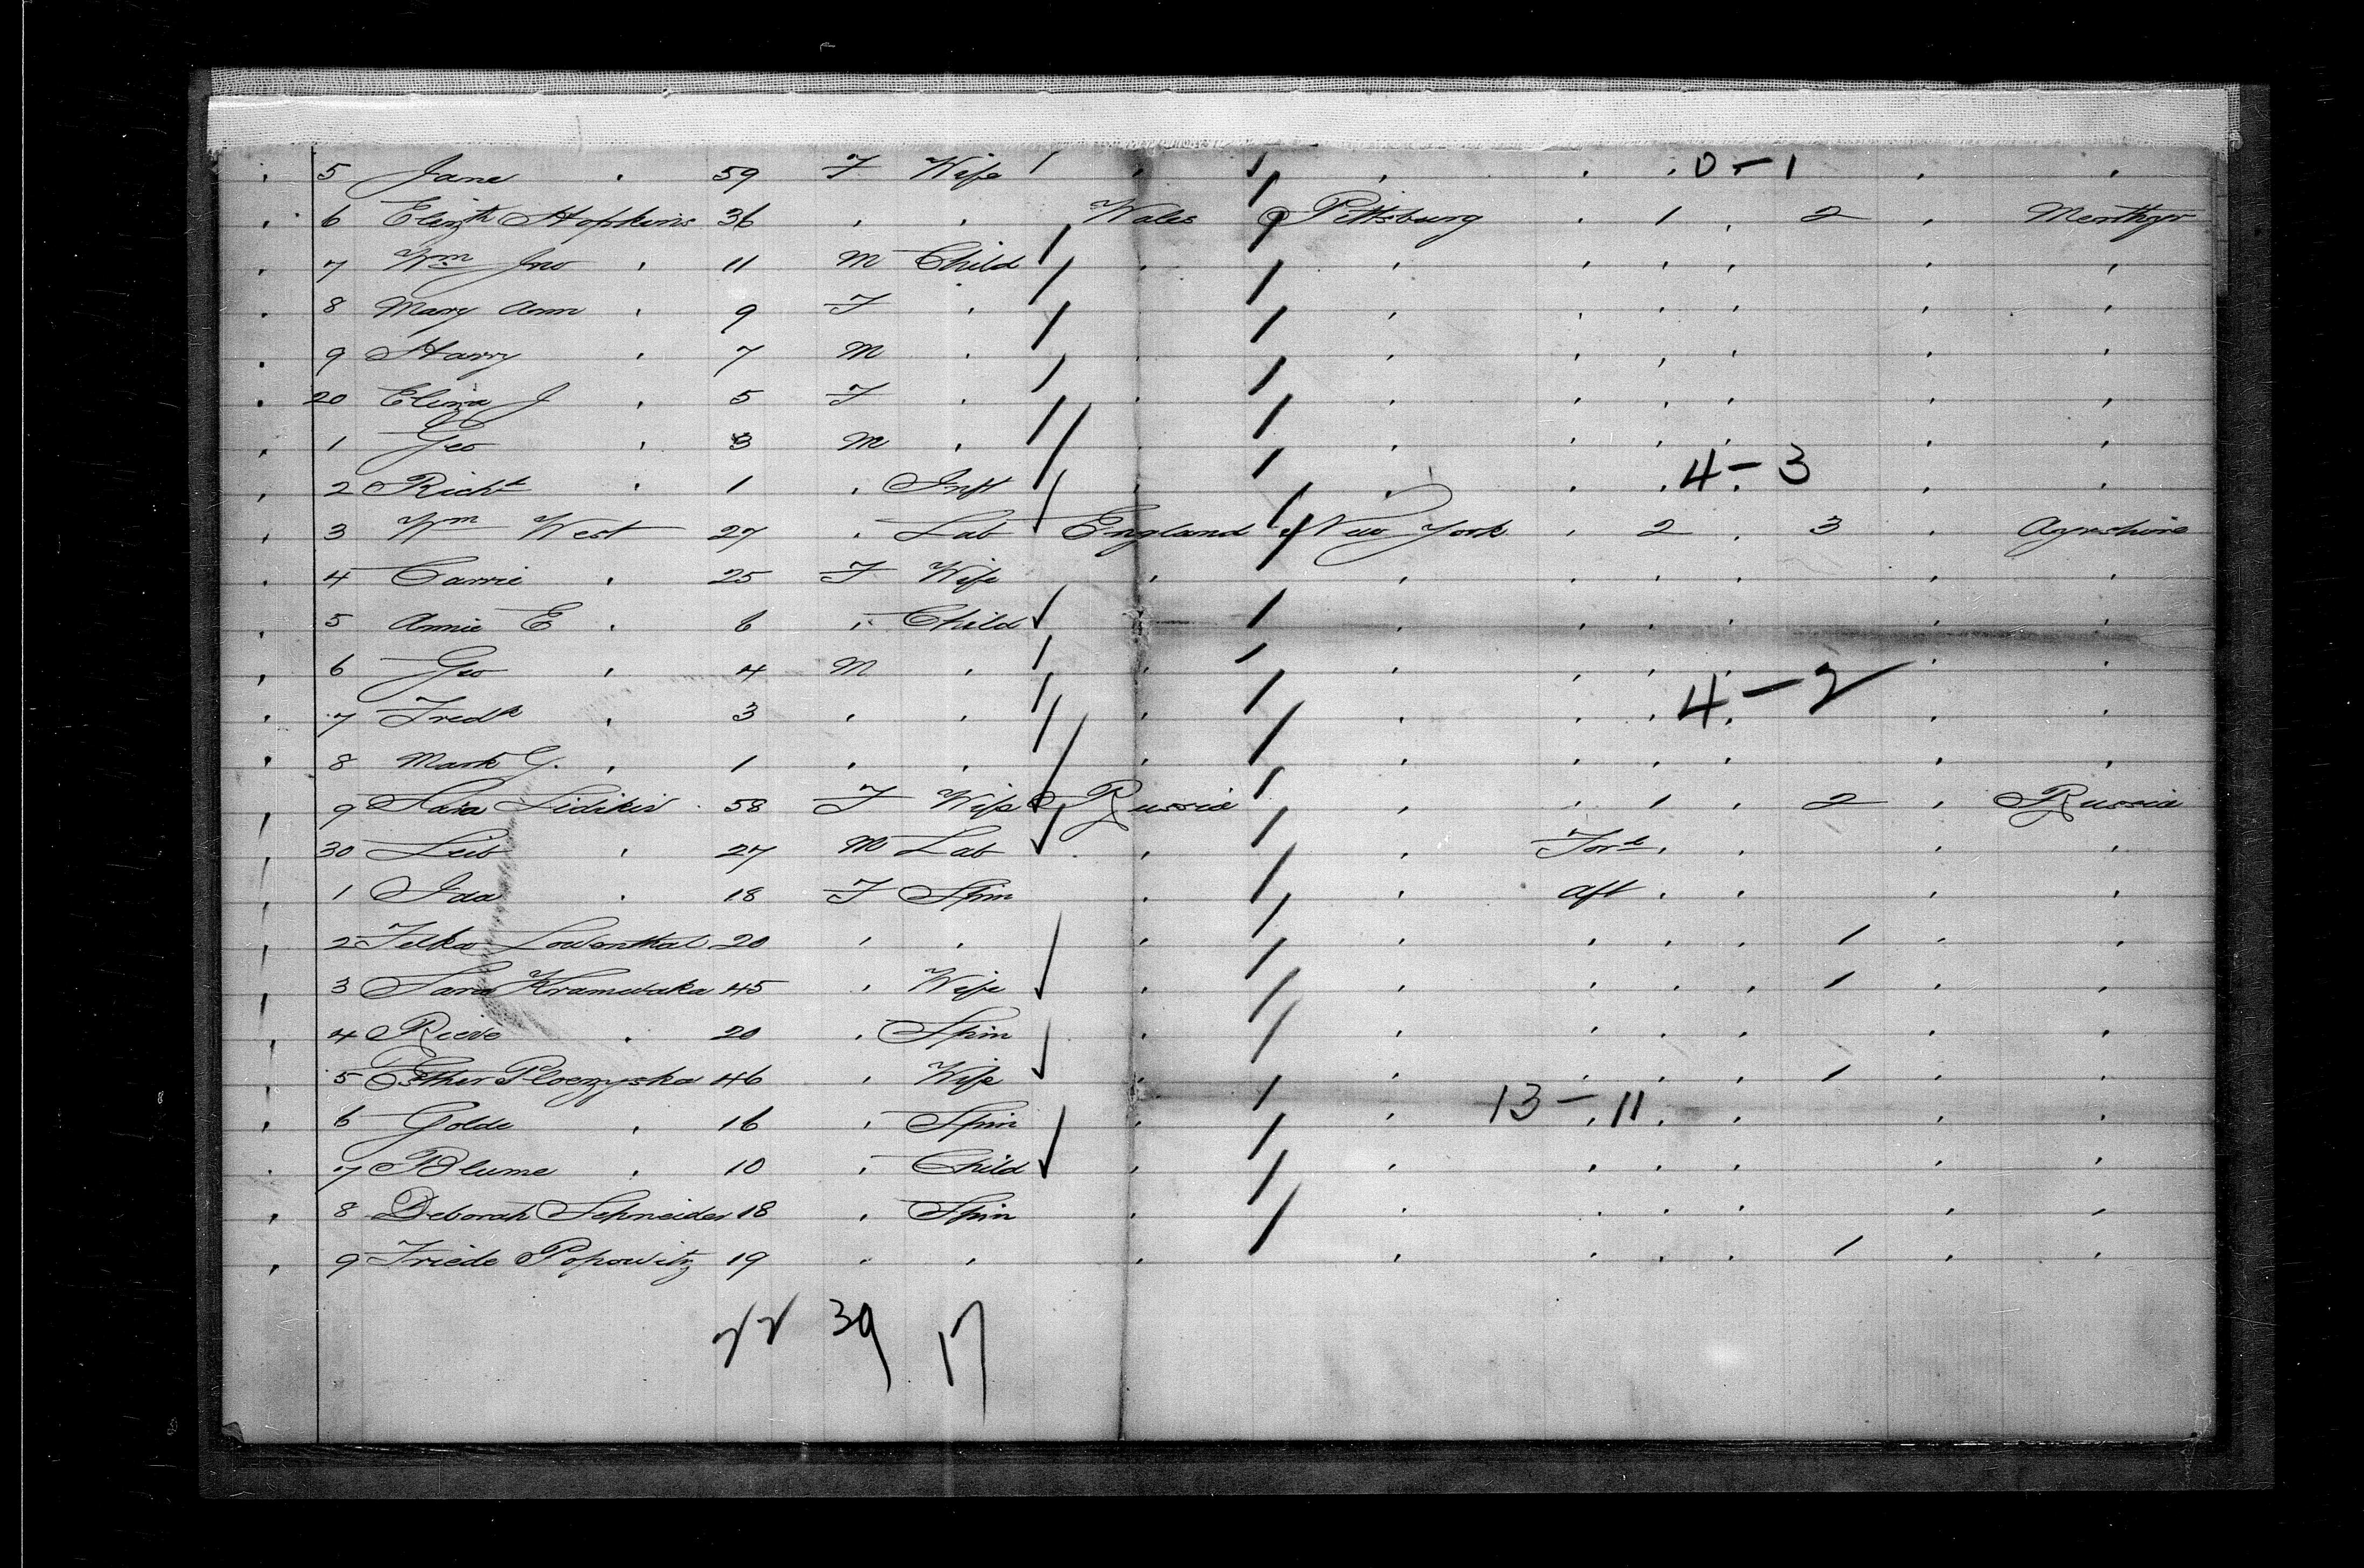 5 Jane " 59 F Wife " " " " 0-1 " "
6 Elizth Hopkins 36 " " Wales Pittsburg " 1 " 2 " Merthyr
7 Wm Jno " 11 M Child " " " " " " "
8 Mary Ann " 9 F " " " " " " " "
9 Harry " 7 M " " " " " " " "
20 Eliza J " 5 F " " " " " " " "
1 Geo " 3 M " " " " " " " "
2 Richd " 1 " Inft " " " " 4-3 " "
3 Wm West 27 " Lab England New York " 2 " 3 " Ayrshire
4 Carrie " 25 F Wife " " " " " " "
5 Annie E " 6 " Child " " " " " " "
6 Geo " 4 M " " " " " " " "
7 Fredk " 3 " " " " " " 4-2 " "
8 Mark G. " 1 " " " " " " " " "
9 Sara 58 F Wife Russia " " 1 " 2 " Russia
30 Leib " 27 M Lab " " Ford " " " "
1 Ida " 18 F Spin " " Aft " " " "
2 Lowenthal 20 " " " " " " " 1 " "
3 Sara 45 " Wife " " " " " 1 " "
4 " 20 " Spin " " " " " " "
5 Esther 46 " Wife " " " " " 1 " "
6 Golde " 16 " Spin " " 13-11 " " " " "
7 Blume " 10 " Child " " " " " " "
8 Deborah Schneider 18 " Spin " " " " " " "
9 Friede Popowitz 19 " " " " " " " 1 " "
22 39 17